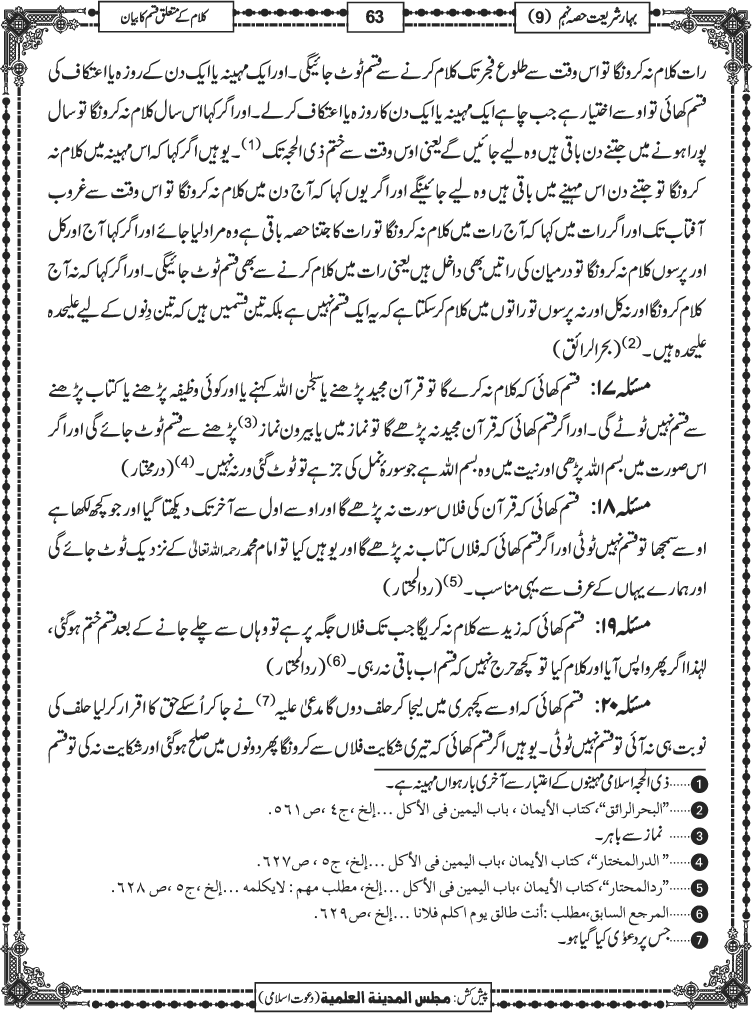 بہار شریعت حصہ نہم (9)
63
کلام کے متعلق قسم کا بیان
رات کلام نہ کرونگا تو اس وقت سے طلوع فجر تک کلام کرنے سے قسم ٹوٹ جائیگی۔ اور ایک مہینہ یا ایک دن کے روزہ یا اعتکاف کی
قسم کھائی تو اوسے اختیار ہے جب چاہے ایک مہینہ یا ایک دن کا روزہ یا اعتکاف کرلے۔ اور اگر کہا اس سال کلام نہ کرونگا تو سال
پورا ہونے میں جتنے دن باقی ہیں وہ لیے جائیں گے یعنی اوس وقت سے ختم ذی الحجہ تک(1)۔ یوہیں اگر کہا کہ اس مہینہ میں کلام نہ
کرونگا تو جتنے دن اس مہینے میں باقی ہیں وہ لیے جائینگے اور اگر یوں کہا کہ آج دن میں کلام نہ کرونگا تو اس وقت سے غروب
آفتاب تک اور اگر رات میں کہا کہ آج رات میں کلام نہ کرونگا تو رات کا جتنا حصہ باقی ہے وہ مراد لیا جائے اور اگر کہا آج اور کل
اور پرسوں کلام نہ کرونگا تو درمیان کی راتیں بھی داخل ہیں یعنی رات میں کلام کرنے سے بھی قسم ٹوٹ جائیگی۔ اور اگر کہا کہ نہ آج
کلام کرونگا اور نہ کل اور نہ پرسوں تو راتوں میں کلام کرسکتا ہے کہ یہ ایک قسم نہیں ہے بلکہ تین قسمیں ہیں کہ تین دِنوں کے لیے علیحدہ
علیحدہ ہیں۔(2) (بحرالرائق)
مسئلہ ۱۷: قسم کھائی کہ کلام نہ کرے گا تو قرآن مجید پڑھنے یا سبْحٰن اللہ کہنے یا اور کوئی وظیفہ پڑھنے یا کتاب پڑھنے
سے قسم نہیں ٹوٹے گی۔ اور اگر قسم کھائی کہ قرآن مجید نہ پڑھے گا تو نماز میں یا بیرونِ نماز(3) پڑھنے سے قسم ٹوٹ جائے گی اور اگر
اس صورت میں بسم اللہ پڑھی اور نیت میں وہ بسم اللہ ہے جو سورۂ نمل کی جز ہے تو ٹوٹ گئی ورنہ نہیں۔(4) (درمختار)
مسئلہ ۱۸: قسم کھائی کہ قرآن کی فلاں سورت نہ پڑھے گا اور اوسے اول سے آخر تک دیکھتا گیا اور جو کچھ لکھا ہے
اوسے سمجھا تو قسم نہیں ٹوٹی اور اگر قسم کھائی کہ فلاں کتاب نہ پڑھے گا اور یوہیں کیا تو امام محمد رحمہ اللہ تعالیٰ کے نزدیک ٹوٹ جائے گی
اور ہمارے یہاں کے عرف سے یہی مناسب۔(5) (ردالمحتار)
مسئلہ ۱۹: قسم کھائی کہ زید سے کلام نہ کریگا جب تک فلاں جگہ پر ہے تو وہاں سے چلے جانے کے بعد قسم ختم ہوگئی،
لہٰذا اگر پھر واپس آیا اور کلام کیا تو کچھ حرج نہیں کہ قسم اب باقی نہ رہی۔(6) (ردالمحتار)
مسئلہ ۲۰: قسم کھائی کہ اوسے کچہری میں لیجا کر حلف دوں گا مدعیٰ علیہ(7) نے جا کر اُسکے حق کا اقرار کرلیا حلف کی
نوبت ہی نہ آئی تو قسم نہیں ٹوٹی۔ یوہیں اگر قسم کھائی کہ تیری شکایت فلاں سے کرونگا پھر دونوں میں صلح ہوگئی اور شکایت نہ کی تو قسم
1 ......ذی الحجہ اسلامی مہینوں کے اعتبار سے آخری بارہواں مہینہ ہے۔
2 ......"البحرالرائق"،کتاب الأیمان ، باب الیمین فی الأکل ...إلخ ،ج٤ ،ص٥٦١.
3 ...... نماز سے باہر۔
4 ......" الدرالمختار"، کتاب الأیمان ،باب الیمین فی الأکل ...إلخ، ج٥ ، ص٦٢٧.
5 ......"ردالمحتار"،کتاب الأیمان ،باب الیمین فی الأکل ...إلخ، مطلب مهم : لایکلمه ...إلخ ،ج٥ ،ص ٦٢٨.
6 ......المرجع السابق،مطلب :أنت طالق یوم اکلم فلانا ...إلخ ،ص٦٢٩.
7 ......جس پر دعوٰی کیا گیا ہو۔
پیش کش: مجلس المدینۃ العلمیۃ (دعوت اسلامی)